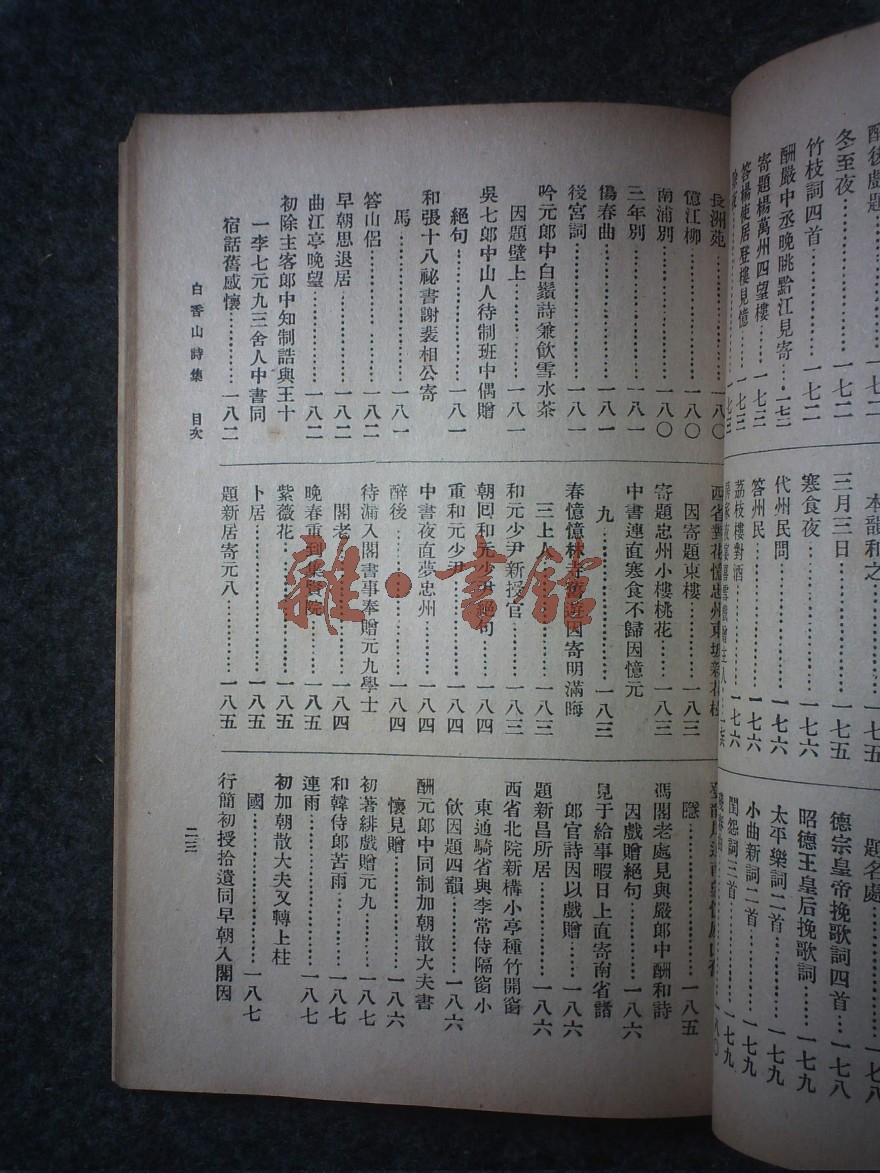 醉後戲題
冬至夜…………一七二
竹枝詞四首……一七二
酬嚴中丞晚眺黔江見寄…一七二
寄題楊萬州四望樓……一七三
答楊使君登樓見憶……一七三
本韻和之……一七五
三月三日………一七五
寒食夜…………一七六
代州民問………一七六
答州民…………一七六
荔枝樓對酒……一七六
題名處…………一七八
德宗皇帝挽歌詞四首…一七八
昭德王皇后挽歌詞…一七九
太平樂詞二首……一七九
小曲新詞二首……一七九
閨怨詞三首………一七九
長洲苑…………一八〇
憶江柳…………一八〇
南浦別…………一八〇
三年別…………一八一
傷春曲…………一八一
後宮詞…………一八一
吟元郎中白鬚詩兼飲雪水茶
因題壁上………一八一
吳七郎中山人待制班中偶贈
絕句……………一八一
和張十八祕書謝裴相公寄
馬………………一八一
答山侶…………一八二
早朝思退居……一八二
曲江亭晚望……一八二
初除主客郎中知制誥與王十
一李七元九三舍人中書同
宿話舊感懷……一八二
西省對花憶忠州東坡新花樹
因寄題東樓……一八三
寄題忠州小樓桃花……一八三
中書連直寒食不歸因憶元
九………………一八三
春憶二林寺舊遊因寄朗滿晦
三上人…………一八三
和元少尹新授官……一八三
朝回和元少尹絕句……一八四
重和元少尹……一八四
中書夜直夢忠州……一八四
醉後……………一八四
待漏入閣書事奉贈元九學士
閣老……………一八四
晚春重到集賢院……一八五
紫薇花…………一八五
卜居……………一八五
題新居寄元八……一八五
隱………………一八五
馮閣老處見與嚴郎中酬和詩
因戲贈絕句……一八六
見于給事暇日上直寄南省諸
郎官詩因以戲贈……一八六
題新昌所居……一八六
西省北院新構小亭種竹開窗
東通騎省與李常侍隔窗小
飲因題四韻……一八六
酬元郎中同制加朝散大夫書
懷見贈…………一八六
初著緋戲贈元九……一八七
和韓侍郎苦雨……一八七
連雨……………一八七
初加朝散大夫又轉上柱
國………………一八七
行簡初授拾遺同早朝入閣因
白香山詩集　目次
二三
雜·書館